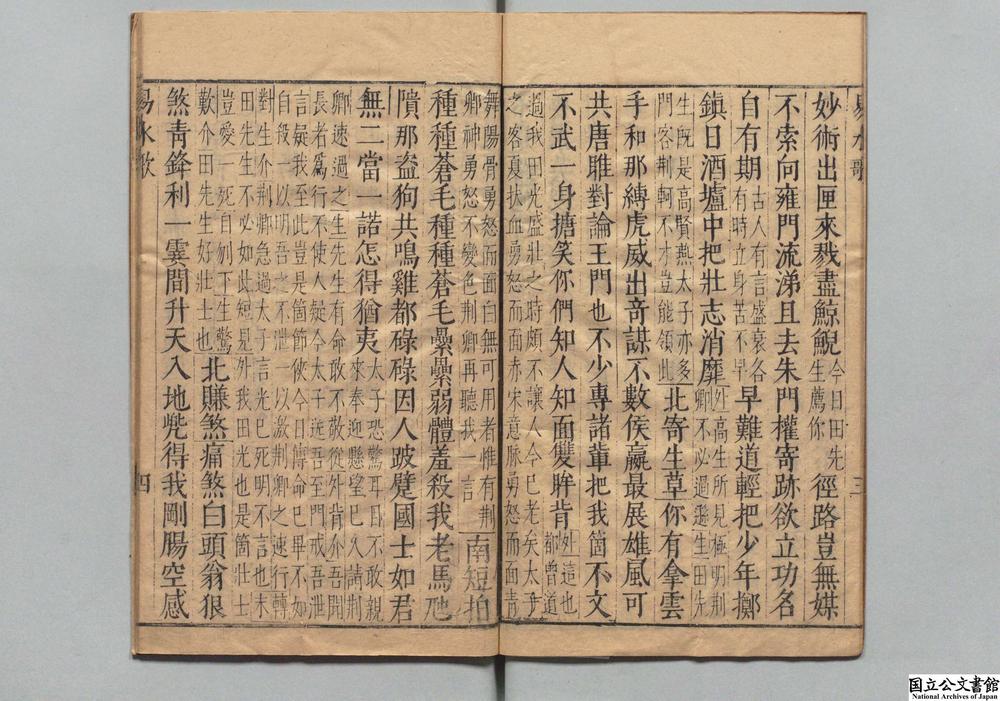 易水歌
三
妙術出匣來戮盡鯨鯢今日田先生薦你徑路豈無媒
不索向雍門流涕且去朱門權寄跡欲立功名
自有期古人有言盛衰各有時立身苦不早早難道輕把少年擲
鎮日酒壚中把壯志消靡处高生所見極明荆卿不必過遜生田先
生既是高賢燕太子亦多門客荆軻不才豈能領此北寄生草你有拿雲
手和那縛虎威出竒謀不數侯嬴最展雄風可
共唐雎對論王門也不少專諸輩把我箇不文
不武一身搪笑你們知人知面雙眸肯处這也都曾道
過我田光盛壯之時頗不讓人今已老矣太子
之客夏扶血勇怒而面赤宋意脉勇怒而面青
舞陽骨勇怒而面白無可用者惟有荆
卿神勇怒不變色荆卿再聽我一言南短拍
種種蒼毛種種蒼毛纍纍弱體羞殺我老馬虺
隤那盗狗共鳴雞都碌碌因人跛躄國士如君
無二當一諾怎得猶夷太子恐驚耳目不敢親來奉迎懸望已久請荆
卿速過之生先生有命敢不敬從外背介吾聞
長者爲行不使人疑今太子送吾至門戒吾泄
言疑我至此豈是箇節俠今日傳命已畢不如
自殺一以明吾之不泄一以激荆卿之速行轉
對生介荆卿急過太子言光已死明不言也末
田先生不必如此短見外我田光也是箇壯士
豈愛一死自刎下生驚歎介田先生好壯士也北賺煞痛煞白頭翁狠
煞青鋒利一霎間升天入地兠得我剛腸空感
易水歌
四
国立公文書館
National Archives of Japan